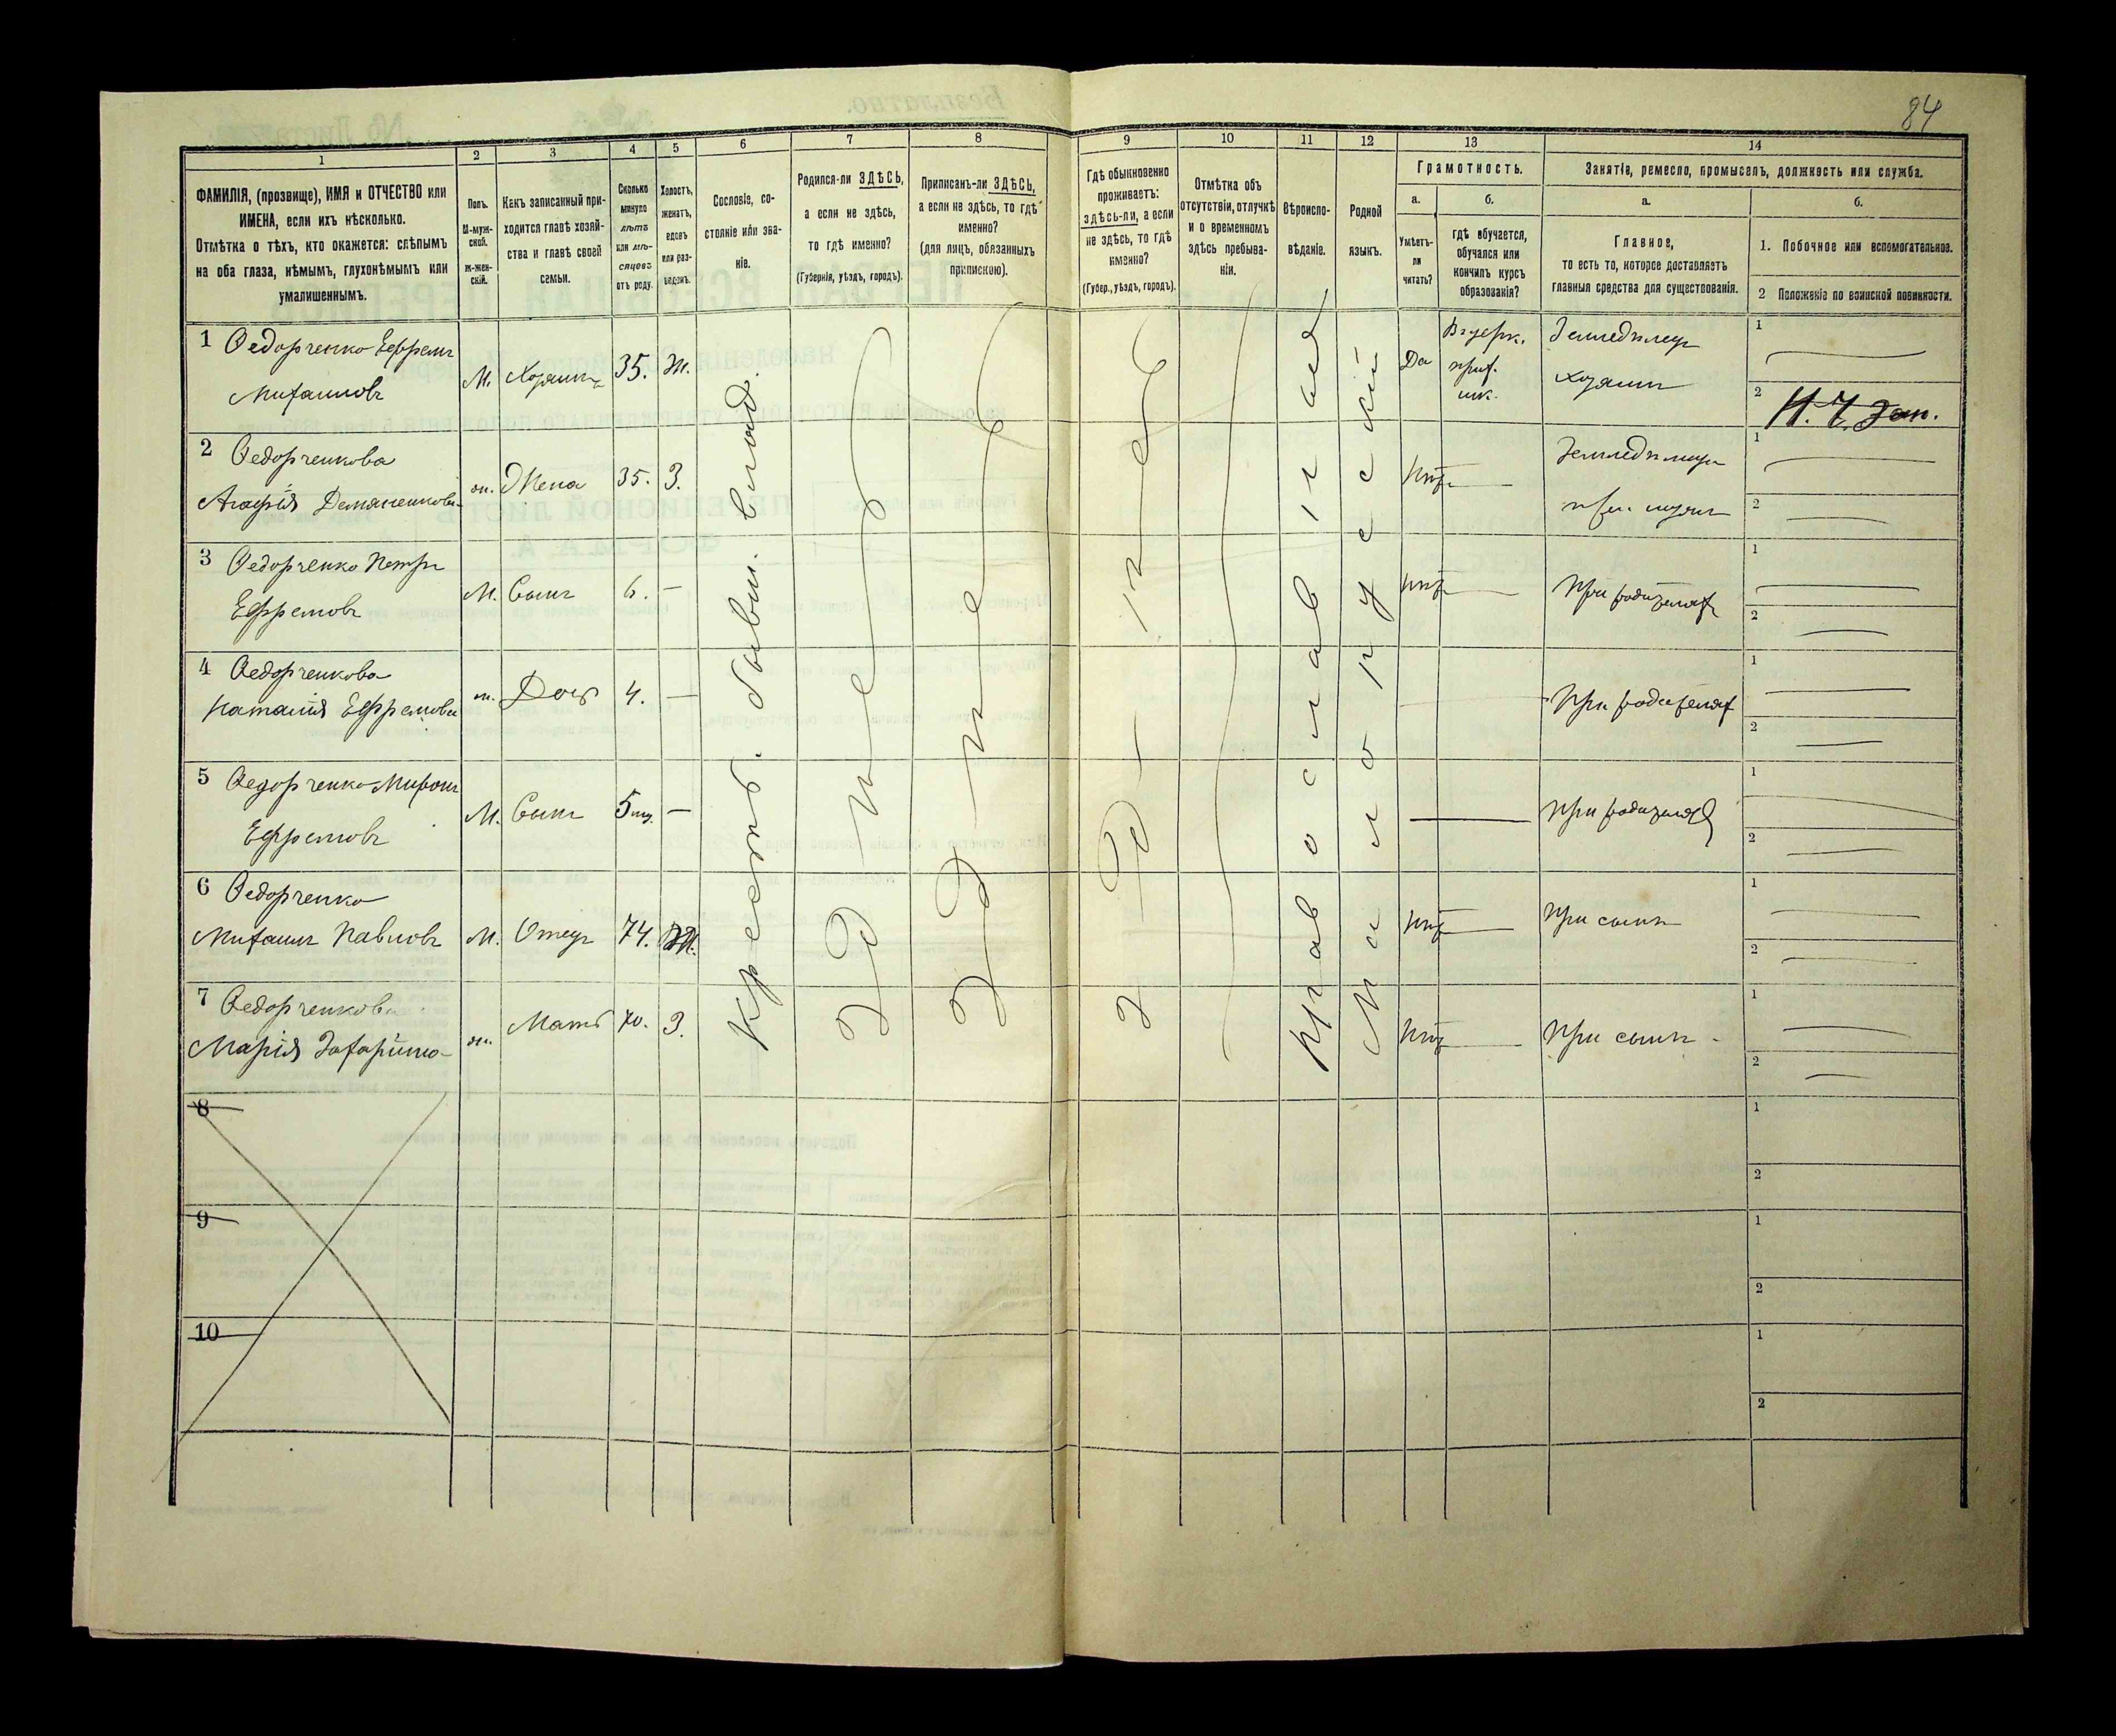 84
1
2
3
4
5
6
7
8
9
10
11
12
13
14
ФАМИЛІЯ, (прозвище), ИМЯ и ОТЧЕСТВО или
ИМЕНА, если ихъ нѣсколько.
Отмѣтка о тѣхъ, кто окажется: слѣпымъ
на оба глаза, нѣмымъ, глухонѣмымъ или
умалишеннымъ.
Полъ.
М-муж-
ской.
Ж-жен-
скій.
Какъ записанный при-
ходится главѣ хозяй-
ства и главѣ своей
семьи.
Сколько
минуло
лѣтъ
или мѣ-
сяцевъ
отъ роду.
Холостъ,
женатъ,
вдовъ
или раз-
веденъ.
Сословіе, со-
стояніе или зва-
ніе.
Родился-ли ЗДѢСЬ,
а если не здѣсь,
то гдѣ именно?
(Губернія, уѣздъ, городъ).
Приписанъ-ли ЗДѢСЬ,
а если не здѣсь, то гдѣ
именно?
(для лицъ, обязанныхъ
припискою).
Гдѣ обыкновенно
проживаетъ:
здѣсь-ли, а если
не здѣсь, то гдѣ
именно?
(Губер., уѣздъ, городъ).
Отмѣтка объ
отсутствіи, отлучкѣ
и о временномъ
здѣсь пребыва-
ніи.
Вѣроиспо-
вѣданіе.
Родной
языкъ.
Грамотность.
а.
б.
Умѣетъ-
ли
читать?
гдѣ обучается,
обучался или
кончилъ курсъ
образованія?
Занятіе, ремесло, промыселъ, должность или служба.
а.
б.
Главное,
то есть то, которое доставляетъ
главныя средства для существованія.
1. Побочное или вспомогательное.
2 Положеніе по воинской повинности.
1 Федорченко Ефремъ
Михаиловъ
М. Хозяинъ 35. Ж.
Крестьян. бывш. владѣ.
Здѣсь
Здѣсь
Здѣсь
Православная
Малорусскій
Да
Въ церк.
прих.
шк.
Земледѣлецъ
хозяинъ
1
2
2 Федорченкова
Агафія Демяненкова
ж. Жена 35. З.
Нѣтъ
Земледѣлецъ
1
2
3 Федорченко Петръ
Ефремовъ
М. Сынъ 6. —
Нѣтъ
При родителяхъ
1
2
4 Федорченкова
Наталія Ефремова
ж. Дочь 4. —
При родителях
1
2
5 Федорченко Миронъ
Ефремовъ
М. Сынъ 5 мѣ. —
При родителях
1
2
6 Федорченко
Михаилъ Павловъ
М. Отецъ 74. Ж.
Нѣтъ
При сынѣ
1
2
7 Федорченкова
Марія Захаріино-
ж. Мать 70. З.
Нѣтъ
При сынѣ.
1
2
8
1
2
9
1
2
10
1
2